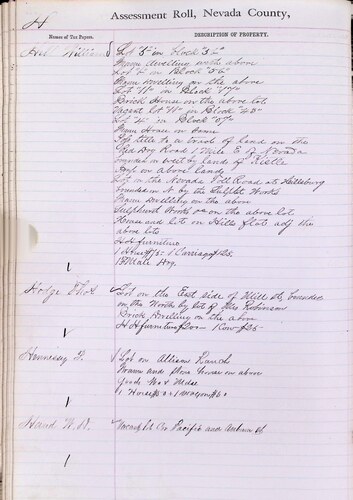 H
Assessment Roll, Nevada County,
Names of Tax Payers. DESCRIPTION OF PROPERTY.
Hill William Lot "3" in block "34"
Frame dwelling with above
Lot 4 in Block "32"
Frame Dwelling on the above
Lot "11" in Block "17"
Brick House on the above lot
Vacant lot "11" in Block
Lot "4" in block
Frame House on Same
title to a track of land on the
Red Dog Road 1 Mile E of Nevada
bounded on west by lands of
Imp on above lands
Lot on the Nevada Toll Road at
bounded N by the Sulphet Works
Frame dwelling on the above
Sulphuret Works on the above lot
House and lot on Hills flats adj the
above lots
H H furniture
1 Horse 1 Carriage $125
1 Male Dog
Hodge Thos Lot on the East side of Mill St bounded
on the North by lot of Mrs Robinson
Brick Dwelling on the above
H H furniture 1 Cow $25
Hennessy P. Lot on Allison Ranch
Frame and Stone house on above
Goods Wares & Mdse
1 Horse 1 Wagon
Hand W. H. Uncaught Co Pacific and Auburn St